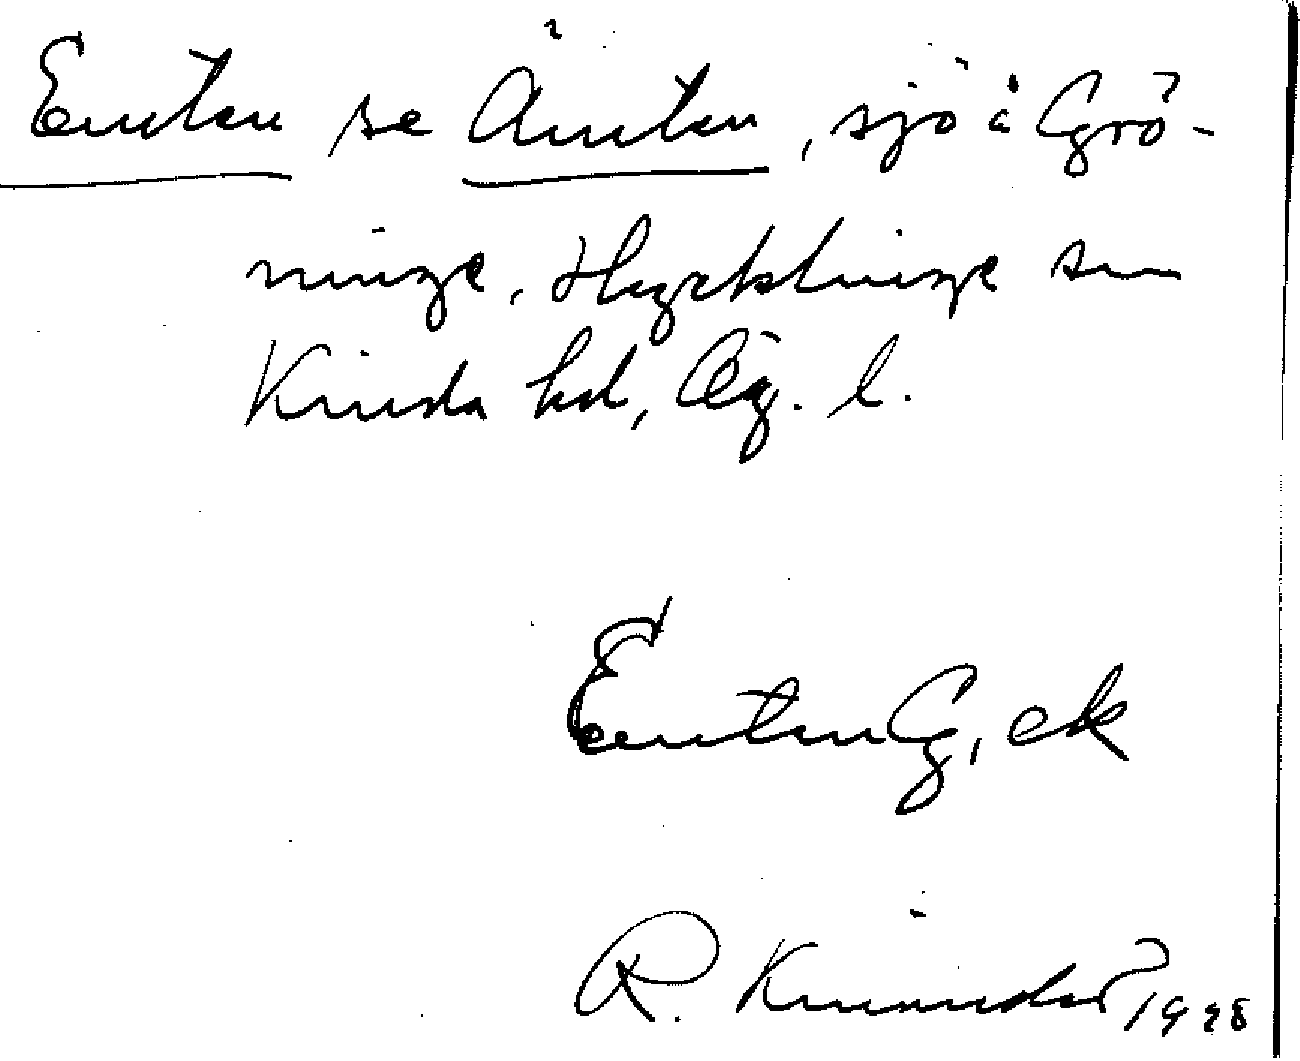 Emten se Ämten, sjö å Grö-
ninge, Hycklinge sn
Kinda hd, Ög. l.
Emten G, ek
R. Kinnander 1928